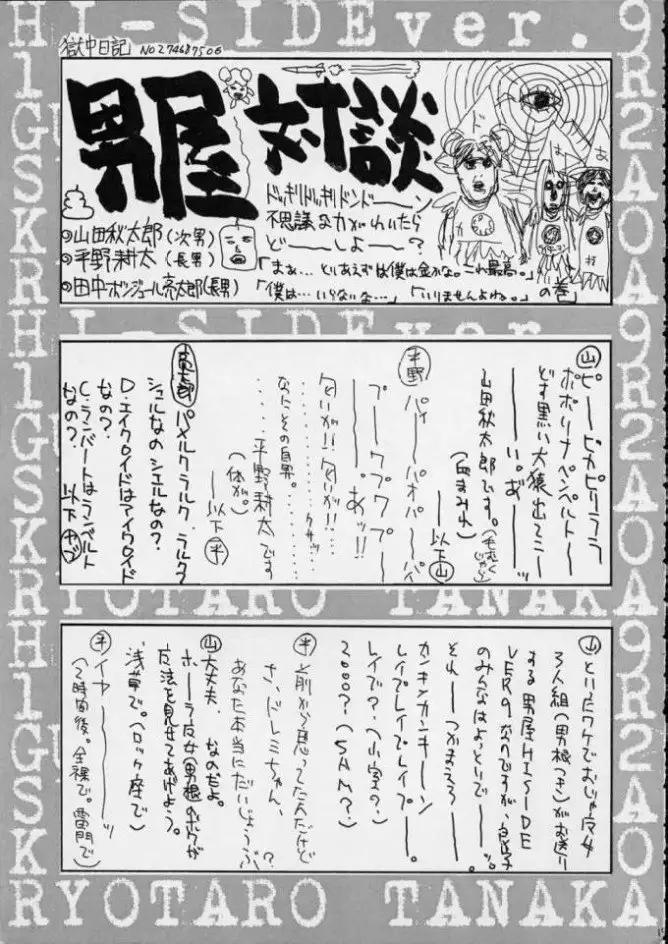 HI-SIDEver.9
獄中日記 NO274687506
男屋対談
ドッキリドッキリドンドーーン
不思議な力がわいたら
どーーしよーー？
山田秋太郎(次男)
平野耕太(長男)
田中ボンジュール亮太郎(長男)
「まぁ…とりあえずは僕は金かな。これ最高。」
「僕は…いらないな…」「いりませんよね。」の巻
HI-SIDEver.9
山 ピーーピカピリララ
ポポリナペペルトーー
どす黒い犬猿出てこーー
ーーい。あ゛ーーッ
山田秋太郎です。(血まみれ)
ーー以下山
平野 パイーーパオパーーパイ
プーープワプワプーー
ーー。あッ!!
匂いが!!匂いが!!
なにその自男。
平野耕太です
(体が。)
ーー以下平
パメルクラルク、ラルク
シェルなのシエルなの？
D.エイクロイドはアイクロイド
なの？
C.ランバートはランベルト
なの？
RYOTARO TANAKA
山 とりたワケでおじゃ魔女
3人組(男根つき)がお送り
する男屋HI SIDE
VER9なのですが、良い子
のみんなはよっといでーーッ。
それーーつかまえろーー
ーー。
カンキンカンキーーン
レイプレイプレイプーー。
レイプで？(小室の？)
2000？(SAM？)
平 前から思ってたんだけど
さ、ドレミちゃん、
あなた本当にだいじょうぶ？
山 大丈夫、なのだよ。
ホーーラ魔女(男根)のボクが
魔法を見せてあげよう。
浅草で。(ロック座で)
平 イヤーーーーッ
(2時間後。全裸で。雷門で)
RYOTARO TANAKA